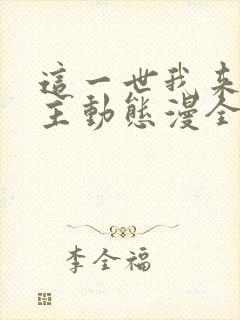 這一世我來
主動態漫全
李全福